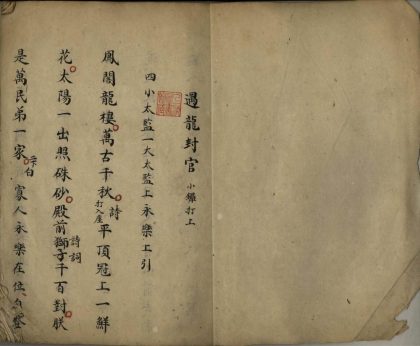 過龍封官 小鑼打上
四小太監一大太監上永樂上引
鳳閣龍樓萬古千秋 詩 打入座 平頂冠上一鮮
花太陽一出照硃砂殿前獅子千百對朕 詩詞
是萬民第一家 白 寡人永樂在位